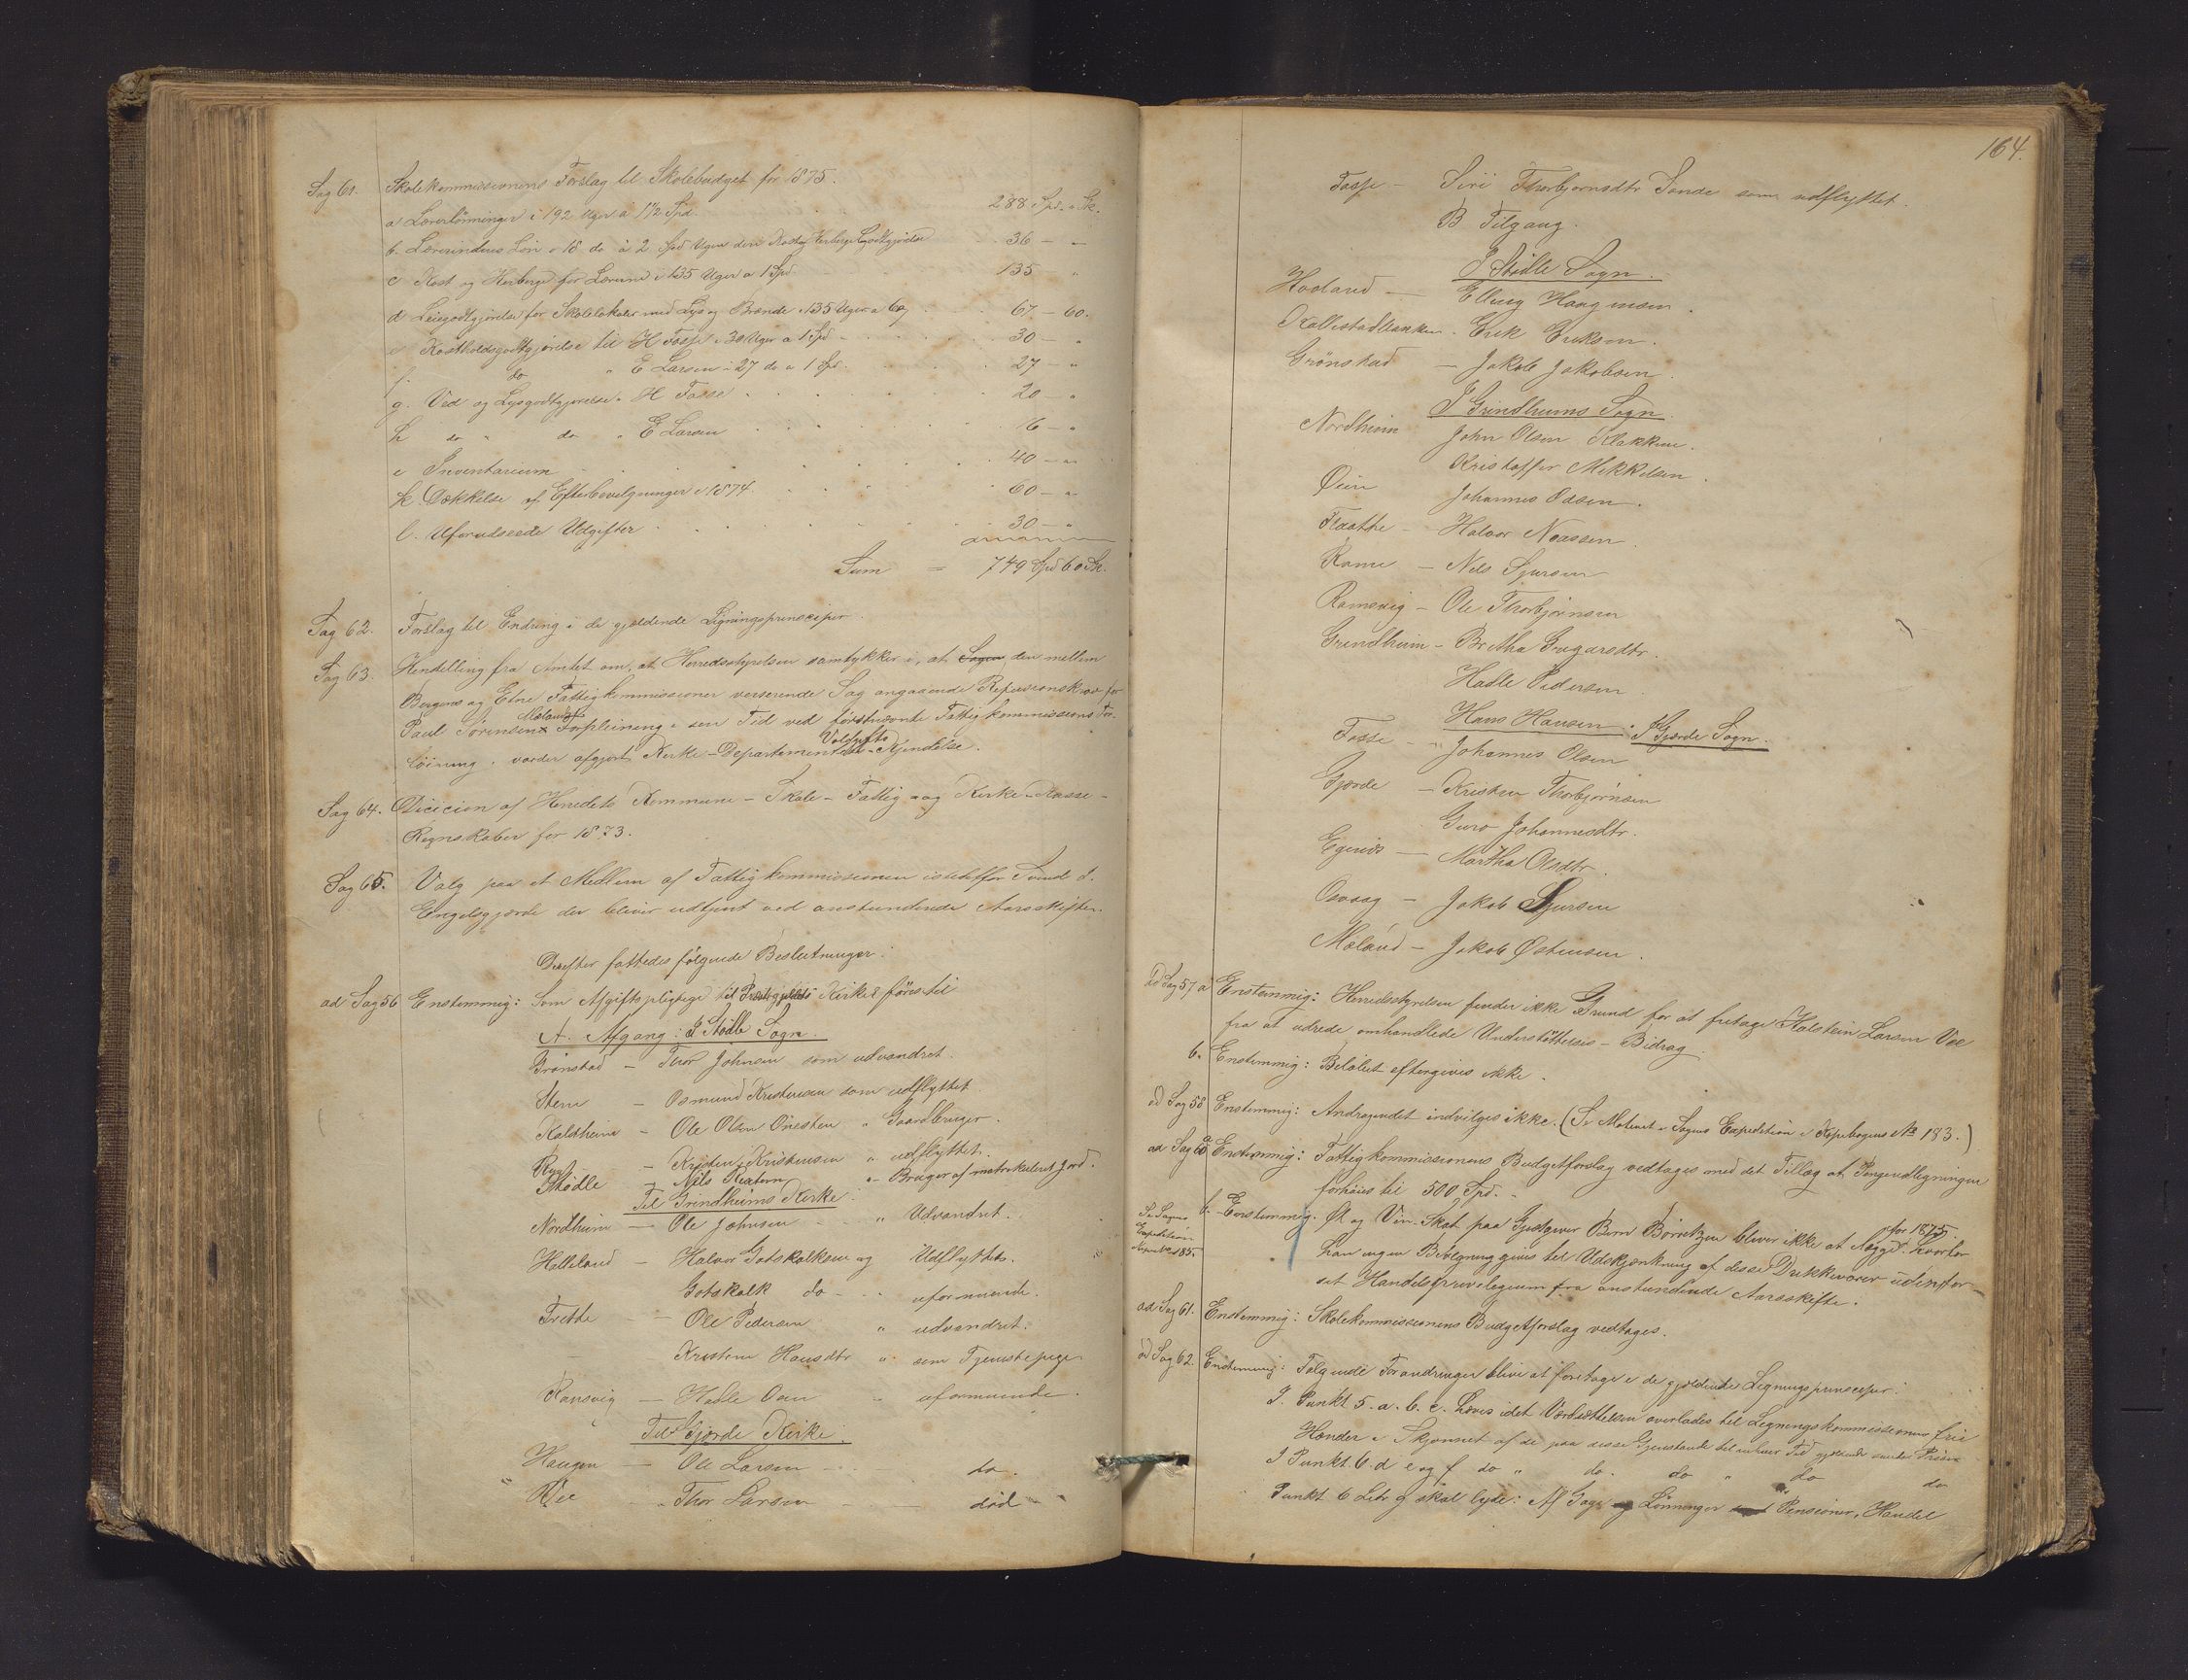 Sag 61. Skolekommissionens Forslag til Skolebudget for 1875.
a Lærerlønninger i 192 Uger a 1 1/2 Spd. 288 Spd. " Sk.
b. Lærerindens Løn i 18 do à 2 Spd Ugen den Kost og Herberge Godtgjørelse 36 — "
c Kost og Herberge for Lærerne i 135 Uger a 1 Spd 135 "
d Leiegodtgjørelse for Skolelokaler med Lys og Brænde i 135 Uger a 60 67 — 60.
e Kostholdsgodtgjørelse til H Fosse i 30 Uger a 1 Spd 30 — "
f do " E Larsen i 27 do a 1 Spd. 27 — "
g. Ved og Lysgodtgjørelse " H Fosse 20 — "
h do " do " E Larsen 16 — "
i Inventarium 40 — "
k Dækkelse af Efterbevilgninger i 1874 60 — "
l. Uforudseede Udgifter 30 — "
Sum = 749 Spd 60 Sk.
Sag 62. Forslag til Endring i de gjældende Ligningsprinciper.
Sag 63. Henstilling fra Amtet om, at Herredsstyrelsen samtykker i, at Sagen den mellem
Bergens og Etne Fattigkommissioner verserende Sag angaaende Refusionskrav for
Paul Sørensen Mælands Forpleining i sin Tid ved førstnævnte Fattigkommissions For-
løining, vorder afgjort Kirke-Departementets Voldgifts-Kjendelse.
Sag 64. Dicicion af Herredets Kommune- Skole- Fattig- og Kirke-Kasse-
Regnskaber for 1873.
Sag 65. Valg paa et Medlem af Fattigkommissionen istedetfor Svend J.
Engelsgjerde der bliver udtjent ved anstundende Aarsskifte.
Derefter fattedes følgende Beslutninger:
ad Sag 56 Enstemmig: Som Afgiftspligtige til Præstegjeldets Kirker føres til
A. Afgang: I Stødle Sogn.
Grønstad — Thor Johnsen som udvandret.
Stene — Osmund Kristensen som udflyttet.
Kaldheim — Ole Olsen Onesten " Gaardbruger.
— Kristen Kristensen " udflyttet.
Stødle — Nils " Bruger af matrikuleret Jord.
Til Grindheims Kirke.
Nordheim — Ole Johnsen " Udvandret.
Helleland — Halvor Gotskalksen og Udflyttet.
Gotskalk do — uformuende.
Trette — Ole Pedersen " udvandret.
Kristine Hansdtr " som Tjenestepige
Ramsvig — Hadle Osen " uformuende.
Til Gjerde Kirke.
Haugen — Ole Larsen — do.
Vee " Thor Larsen — død "
164.
Fosse — Siri Thorbjørnsdtr Sande som udflyttet.
B Tilgang.
I Stødle Sogn.
Hovland — Elling Haagensen.
Kallestadbakken. Erik Eriksen.
Grønstad — Jakob Jakobsen.
I Grindheims Sogn
Nordheim John Olsen Klakken.
Kristoffer Mikkelsen.
Øien Johannes Odsen.
Flaathe — Halvor Noassen.
Rame — Nils Sjursen
Ramsvig — Ole Thorbjørnsen
Grindheim — Britha Gregarsdtr.
Hadle Pedersen
Hans Hansen. I Gjerde Sogn.
Fosse — " Johannes Olsen
Gjerde — Kristen Thorbjørnsen
Guro Johannesdtr.
Egenæs — Martha Olsdtr.
Osvaag — Jakob Sjursen
Mæland — Jakob Østensen.
ad Sag 57 a Enstemmig: Herredsstyrelsen finder ikke Grund for at fritage Halstein Larsen Vee
fra at udrede omhandlede Understøttelses-Bidrag.
b. Enstemmig: Beløbet eftergives ikke.
ad Sag 58 Enstemmig: Andragendet indvilges ikke. (Se Motivet i Sagens Expedition i Kopibogens No 183.)
ad Sag 60 a Enstemmig: Fattigkommissionens Budgetforslag vedtages med det Tillæg at Pengeudligningen
forhøies til 500 Spd. —
Se Sagens
Expedition
Kopi No 185.
b. Enstemmig. Øl og Vin-Skat paa Gjestgiver Børretzen bliver ikke at lægge for 1875. hvorfor
han ingen Bevilgning gives til Udskjænkning af disse Drikkevarer udenfor
sit Handelsprivilegium fra anstundende Aarsskifte.
ad Sag 61. Enstemmig: Skolekommissionens Budgetforslag vedtages.
ad Sag 62. Enstemmig: Følgende Forandringer blive at foretage i de gjældende Ligningsprinciper:
I. Punkt 5. a. b. c. hæves idet Værdsættelsen overlades til Ligningskommissionens frie
Hænder i Skjønnet af de paa disse Gjenstande til enhver Tid gjældende sande Priser
I Punkt 6 d e og f do " do. do " do do
Punkt 6 Litr g skal lyde: Af Gage og Lønninger Pensioner, Handel